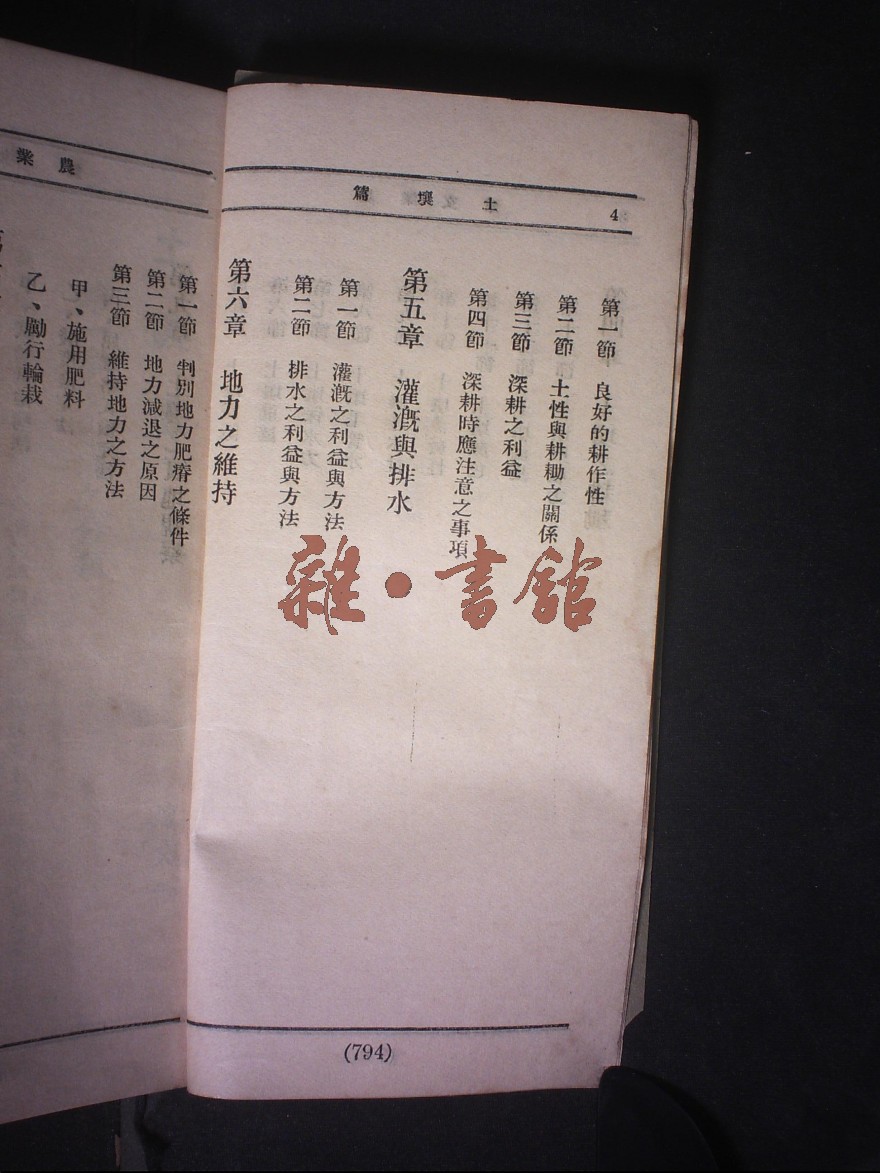 土壤篇
4
第一節 良好的耕作性
第二節 土性與耕耡之關係
第三節 深耕之利益
第四節 深耕時應注意之事項
第五章 灌漑與排水
第一節 灌漑之利益與方法
第二節 排水之利益與方法
第六章 地力之維持
(794)
雜·書館
農業
第一節 判別地力肥瘠之條件
第二節 地力減退之原因
第三節 維持地力之方法
甲、施用肥料
乙、勵行輪栽